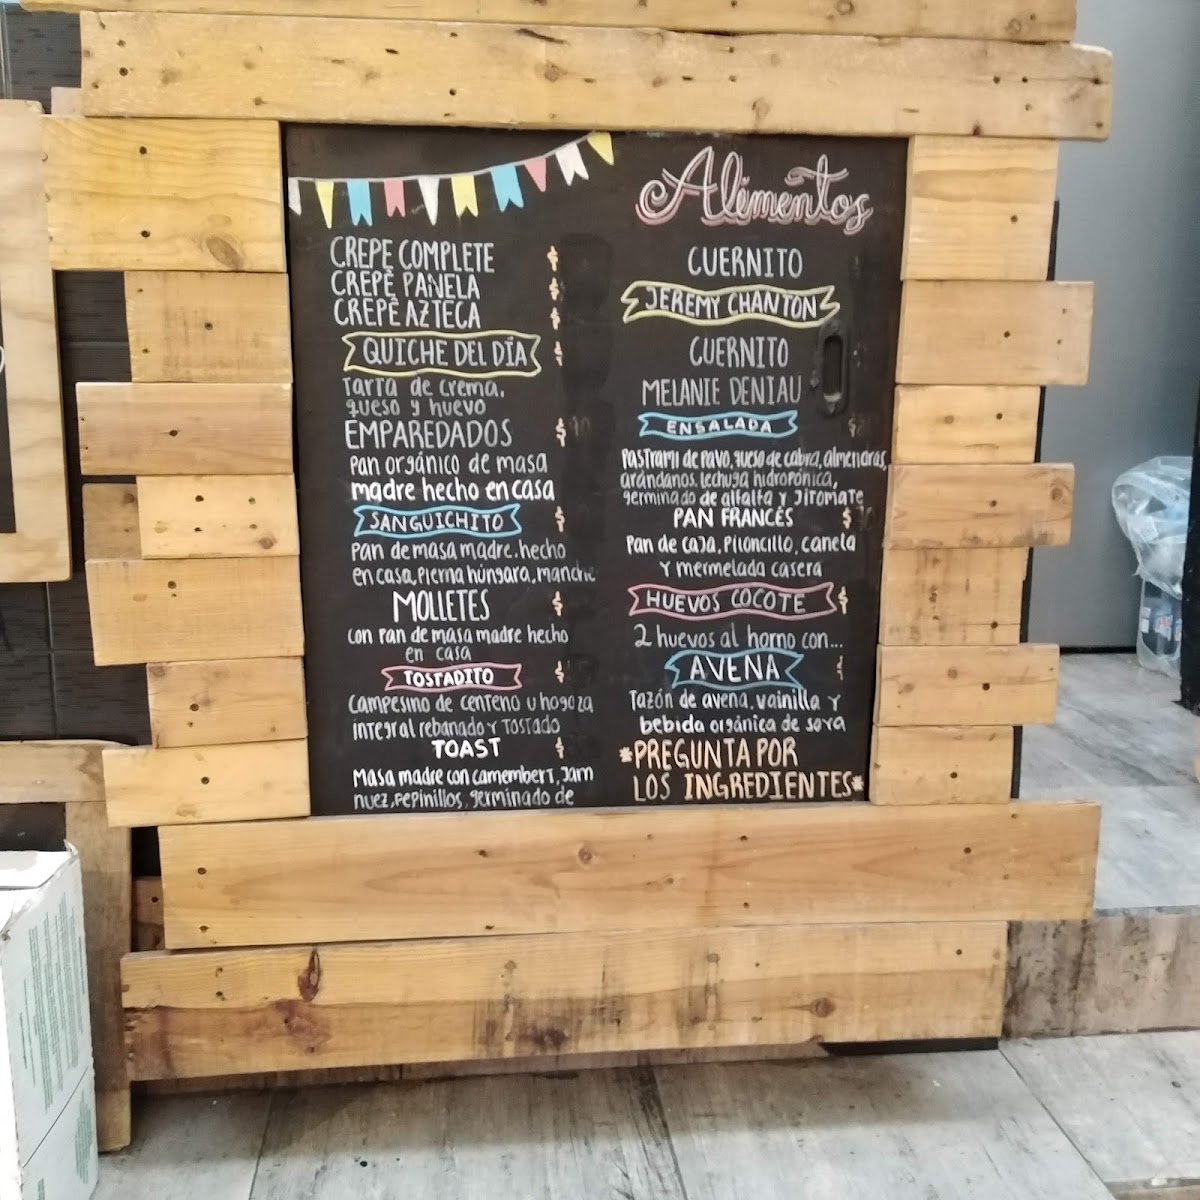 Alimentos
CREPE COMPLETE $
CREPÊ PANELA $
CREPÊ AZTECA $
QUICHE DEL DÍA $
Tarta de crema,
queso y huevo
EMPAREDADOS $
Pan orgánico de masa
madre hecho en casa
SANGUICHITO $
Pan de masa madre, hecho
en casa, pierna húngara, manche
MOLLETES $
con pan de masa madre hecho
en casa
TOSTADITO $
Campesino de centeno u hogaza
integral rebanado y tostado
TOAST $
Masa madre con camembert, jam
nuez, pepinillos, germinado de
CUERNITO
JEREMY CHANTON
CUERNITO
MELANIE DENIAU
ENSALADA
Pastrami de pavo, queso de cabra, almendras,
arándanos, lechuga hidropónica,
germinado de alfalfa y jitomate
PAN FRANCÉS $
Pan de caja, piloncillo, canela
y mermelada casera
HUEVOS COCOTE $
2 huevos al horno con...
AVENA $
Tazón de avena, vainilla y
bebida orgánica de soya
*PREGUNTA POR
LOS INGREDIENTES*